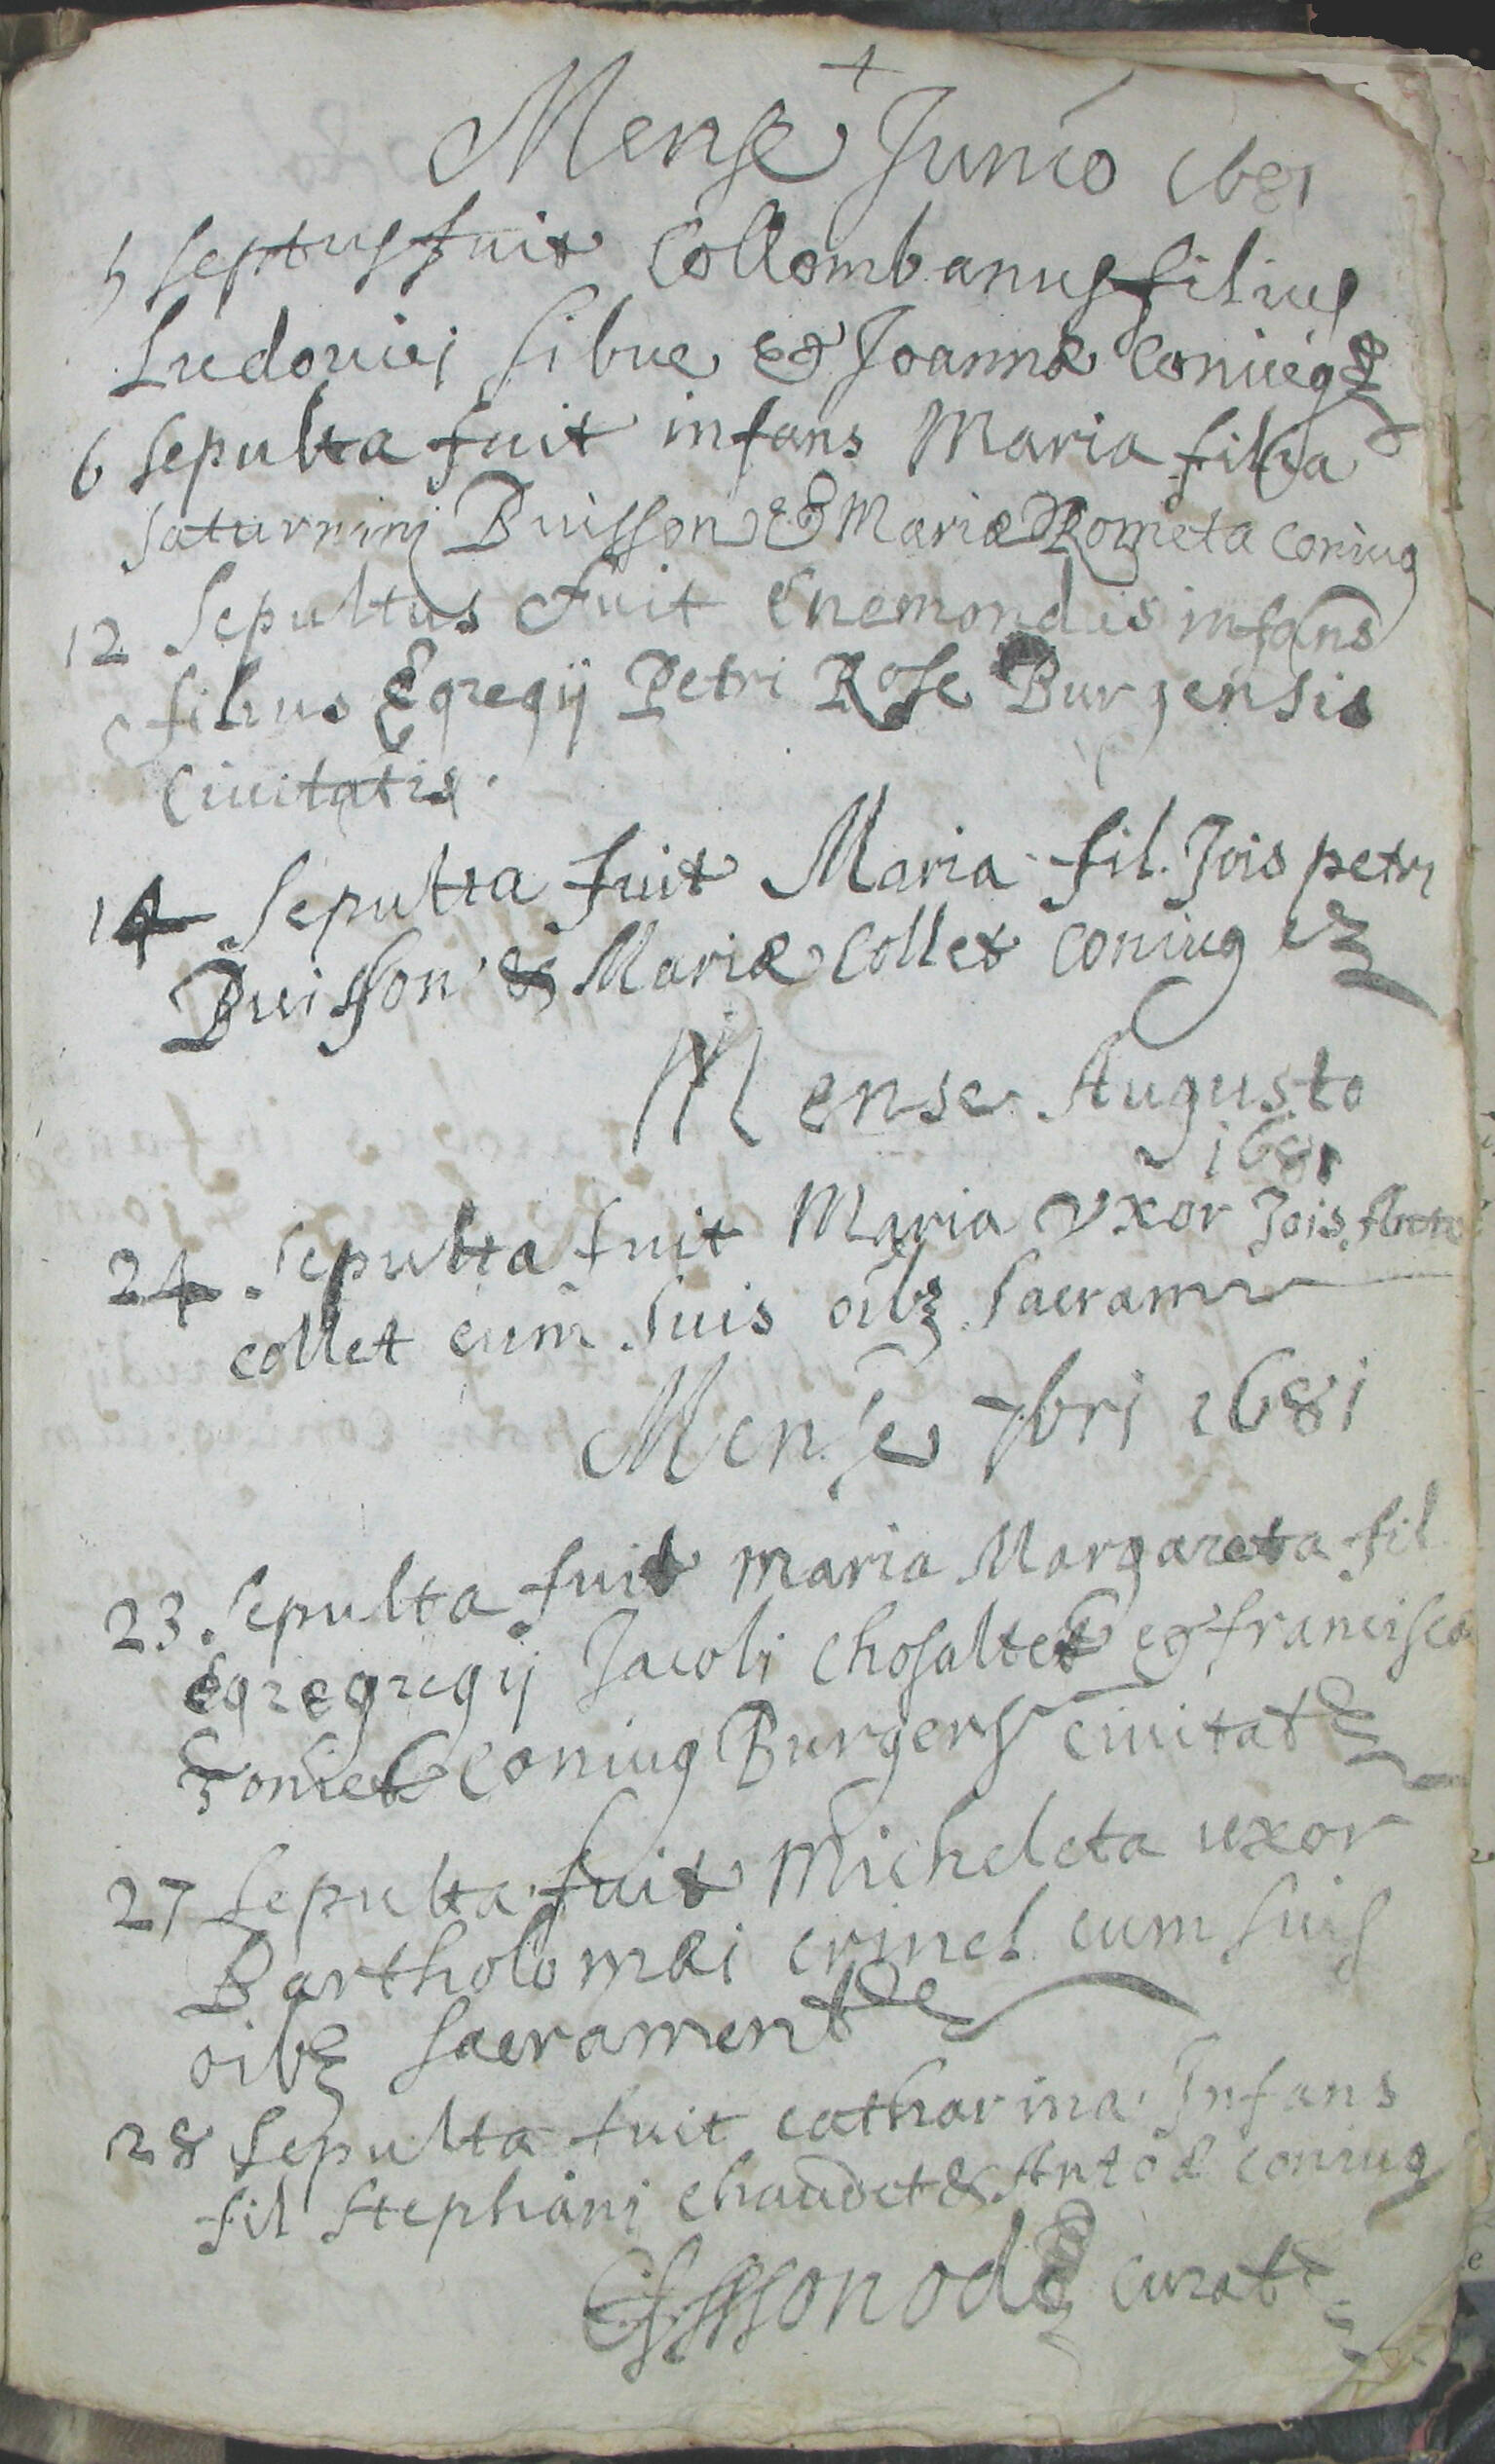 +
Mense Junio 1681
5 septus fuit Collombanus filius
Ludovici sibue & Joannæ coniug
6 sepulta fuit infans Maria filia
saturnini Buisson & Mariæ Rometa coniug
12 Sepultus fuit Enemondus infans
filius Egregij Petri Rose Burgensis
civitatis.
14 Sepulta fuit Maria fil. Jois petri
Buisson & Mariæ Collet coniug
Mense Augusto
1681
24. Sepulta fuit Maria vxor Jois Anto
collet cum suis oibz sacram
Mense 7bri 1681
23. sepulta fuit Maria Margareta fil
Egregregij Jacobi chosaltet & francisca
coniug Burgens civitat
27 sepulta fuit Micheleta uxor
Bartholomæi crinel cum suis
oibz sacrament
28 sepulta fuit catharina Infans
fil Stephani chaudet & Antoæ coniug
curat